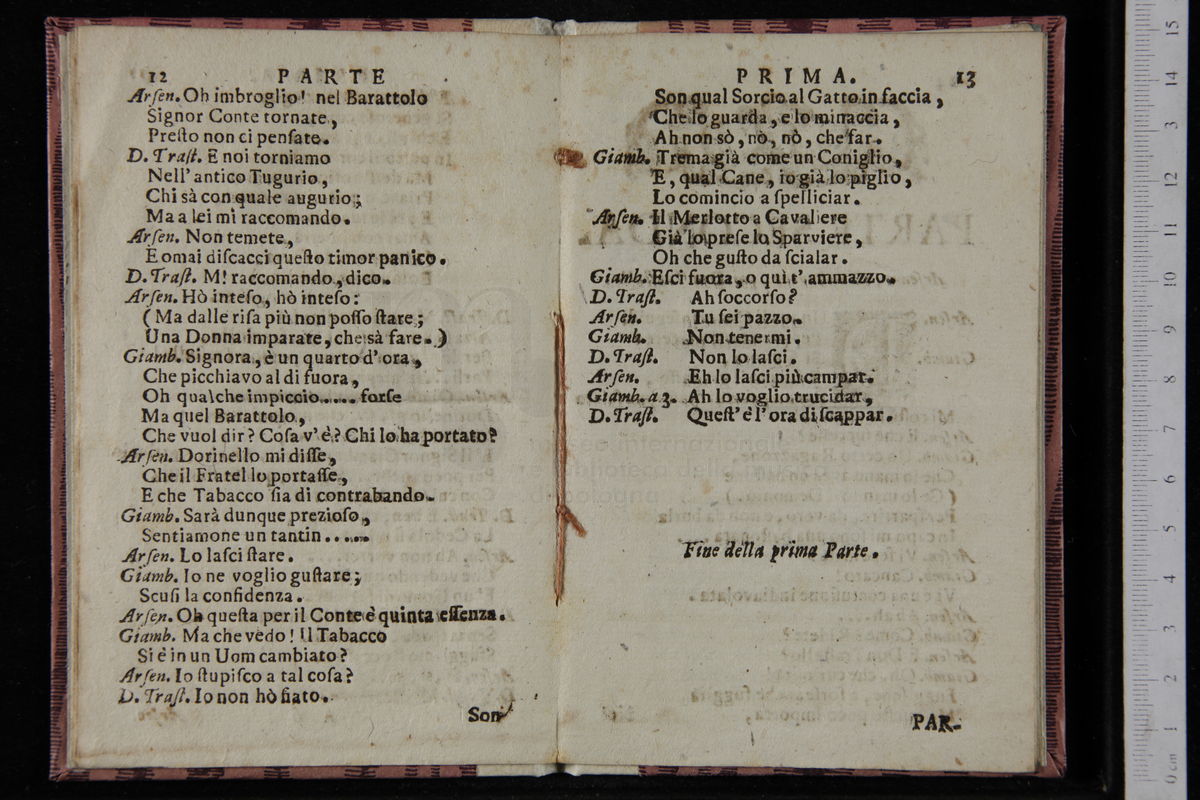 12 PARTE
Arſen. Oh imbroglio! nel Barattolo
Signor Conte tornate,
Preſto non ci penſate.
D. Traſt. E noi torniamo
Nell' antico Tugurio,
Chi sà con quale augurio;
Ma a lei mi raccomando.
Arſen. Non temete,
E omai diſcacci queſto timor panico.
D. Traſt. M! raccomando, dico.
Arſen. Hò inteſo, hò inteſo:
(Ma dalle riſa più non poſſo ſtare;
Una Donna imparate, che sà fare.)
Giamb. Signora, è un quarto d' ora,
Che picchiavo al di fuora,
Oh qualche impiccio...... forſe
Ma quel Barattolo,
Che vuol dir? Coſa v' è? Chi lo ha portato?
Arſen. Dorinello mi diſſe,
Che il Fratel lo portaſſe,
E che Tabacco ſia di contrabando.
Giamb. Sarà dunque prezioſo,
Sentiamone un tantin......
Arſen. Lo laſci ſtare.
Giamb. Io ne voglio guſtare;
Scuſi la confidenza.
Arſen. Oh queſta per il Conte è quinta eſſenza.
Giamb. Ma che vedo! Il Tabacco
Si è in un Uom cambiato?
Arſen. Io ſtupiſco a tal coſa?
D. Traſt. Io non hò fiato.
Son
PRIMA. 13
Son qual Sorcio al Gatto in faccia,
Che lo guarda, e lo minaccia,
Ah non sò, nò, nò, che far.
Giamb. Trema già come un Coniglio,
E, qual Cane, io già lo piglio,
Lo comincio a ſpelliciar.
Arſen. Il Merlotto a Cavaliere
Già lo preſe lo Sparviere,
Oh che guſto da ſcialar.
Giamb. Eſci fuora, o quì t' ammazzo.
D. Traſt. Ah ſoccorſo?
Arſen. Tu ſei pazzo.
Giamb. Non tenermi.
D. Traſt. Non lo laſci.
Arſen. Eh lo laſci più campar.
Giamb. a 3. Ah lo voglio trucidar,
D. Traſt. Queſt' è l' ora di ſcappar.
Fine della prima Parte.
PAR-